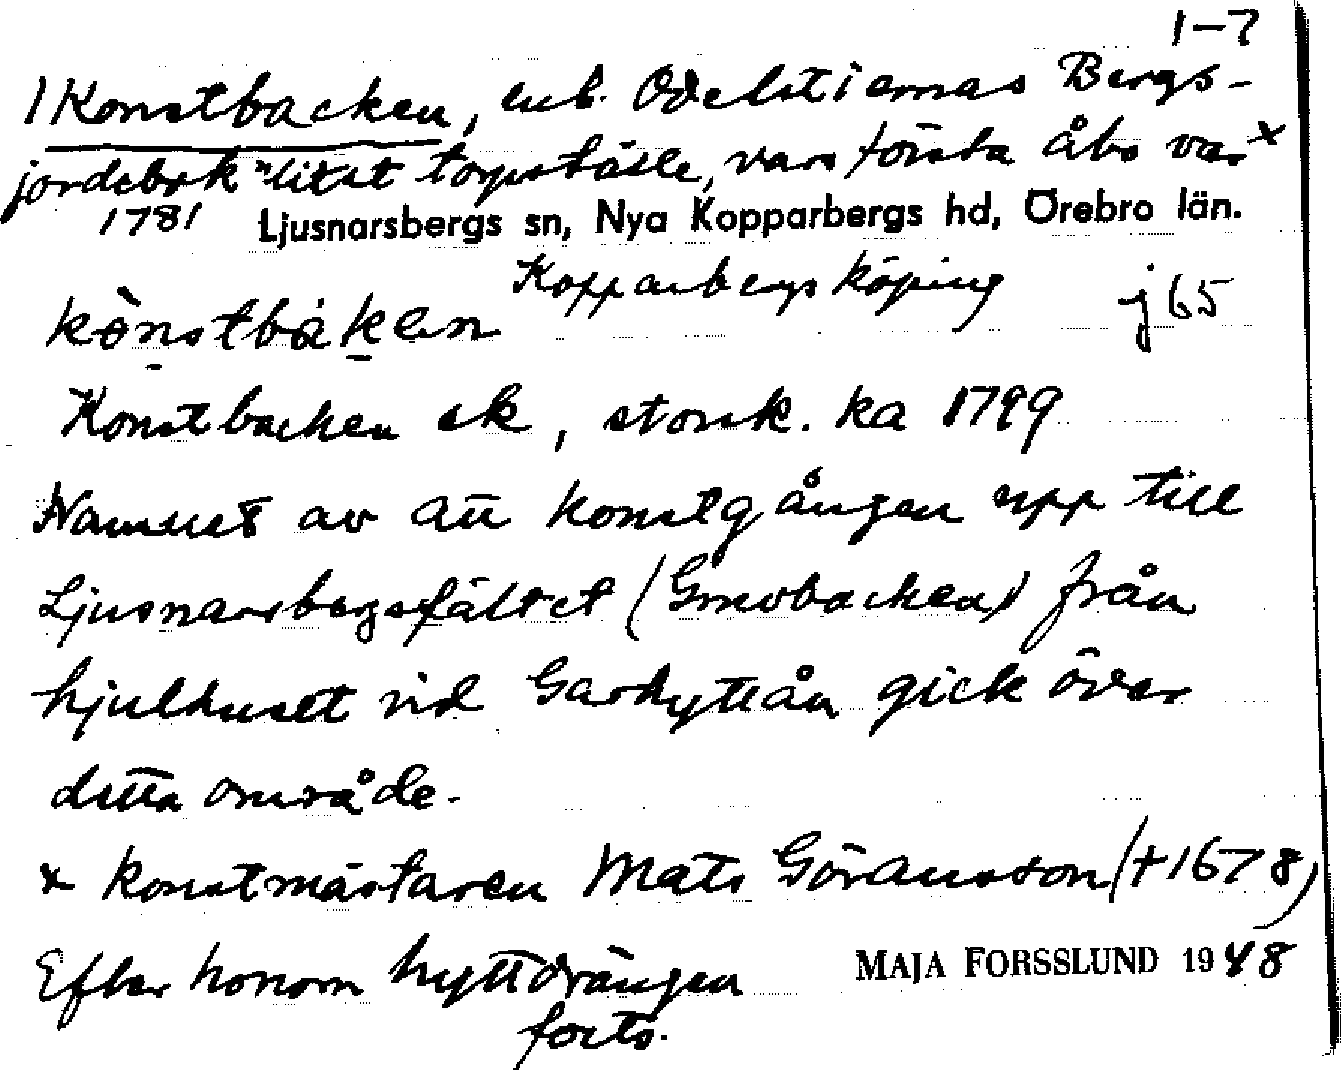 1–7
1 Konstbacken, enl. Odelstiernas Bergs-
jordebok "litet torpställe, vars första åbo var x
1781 Ljusnarsbergs sn, Nya Kopparbergs hd, Örebro län.
Kopparbergs köping j 65
kònstbàken
Konstbacken ek, storsk. ka 1799
Namnet av att konstgången upp till
Ljusnarsbergsfältet (Gruvbacken) från
hjulhuset vid Garhytteån gick över
detta område.
x konstmästaren Mats Göransson (+1678)
Efter honom hyttdrängen
forts.
MAJA FORSSLUND 1948